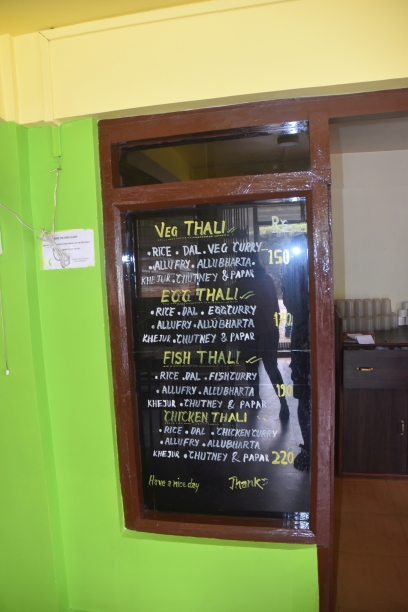 VEG THALI Rs
• RICE • DAL • VEG CURRY
• ALLUFRY • ALLUBHARTA 150
KHEJUR • CHUTNEY & PAPAR
EGG THALI
• RICE • DAL • EGGCURRY
• ALLUFRY • ALLUBHARTA
KHEJUR • CHUTNEY & PAPAR
FISH THALI
• RICE • DAL • FISHCURRY
• ALLUFRY • ALLUBHARTA
KHEJUR • CHUTNEY & PAPAR
CHICKEN THALI
• RICE • DAL • CHICKEN CURRY
• ALLUFRY • ALLUBHARTA
KHEJUR • CHUTNEY & PAPAR 220
Have a nice day Thanks